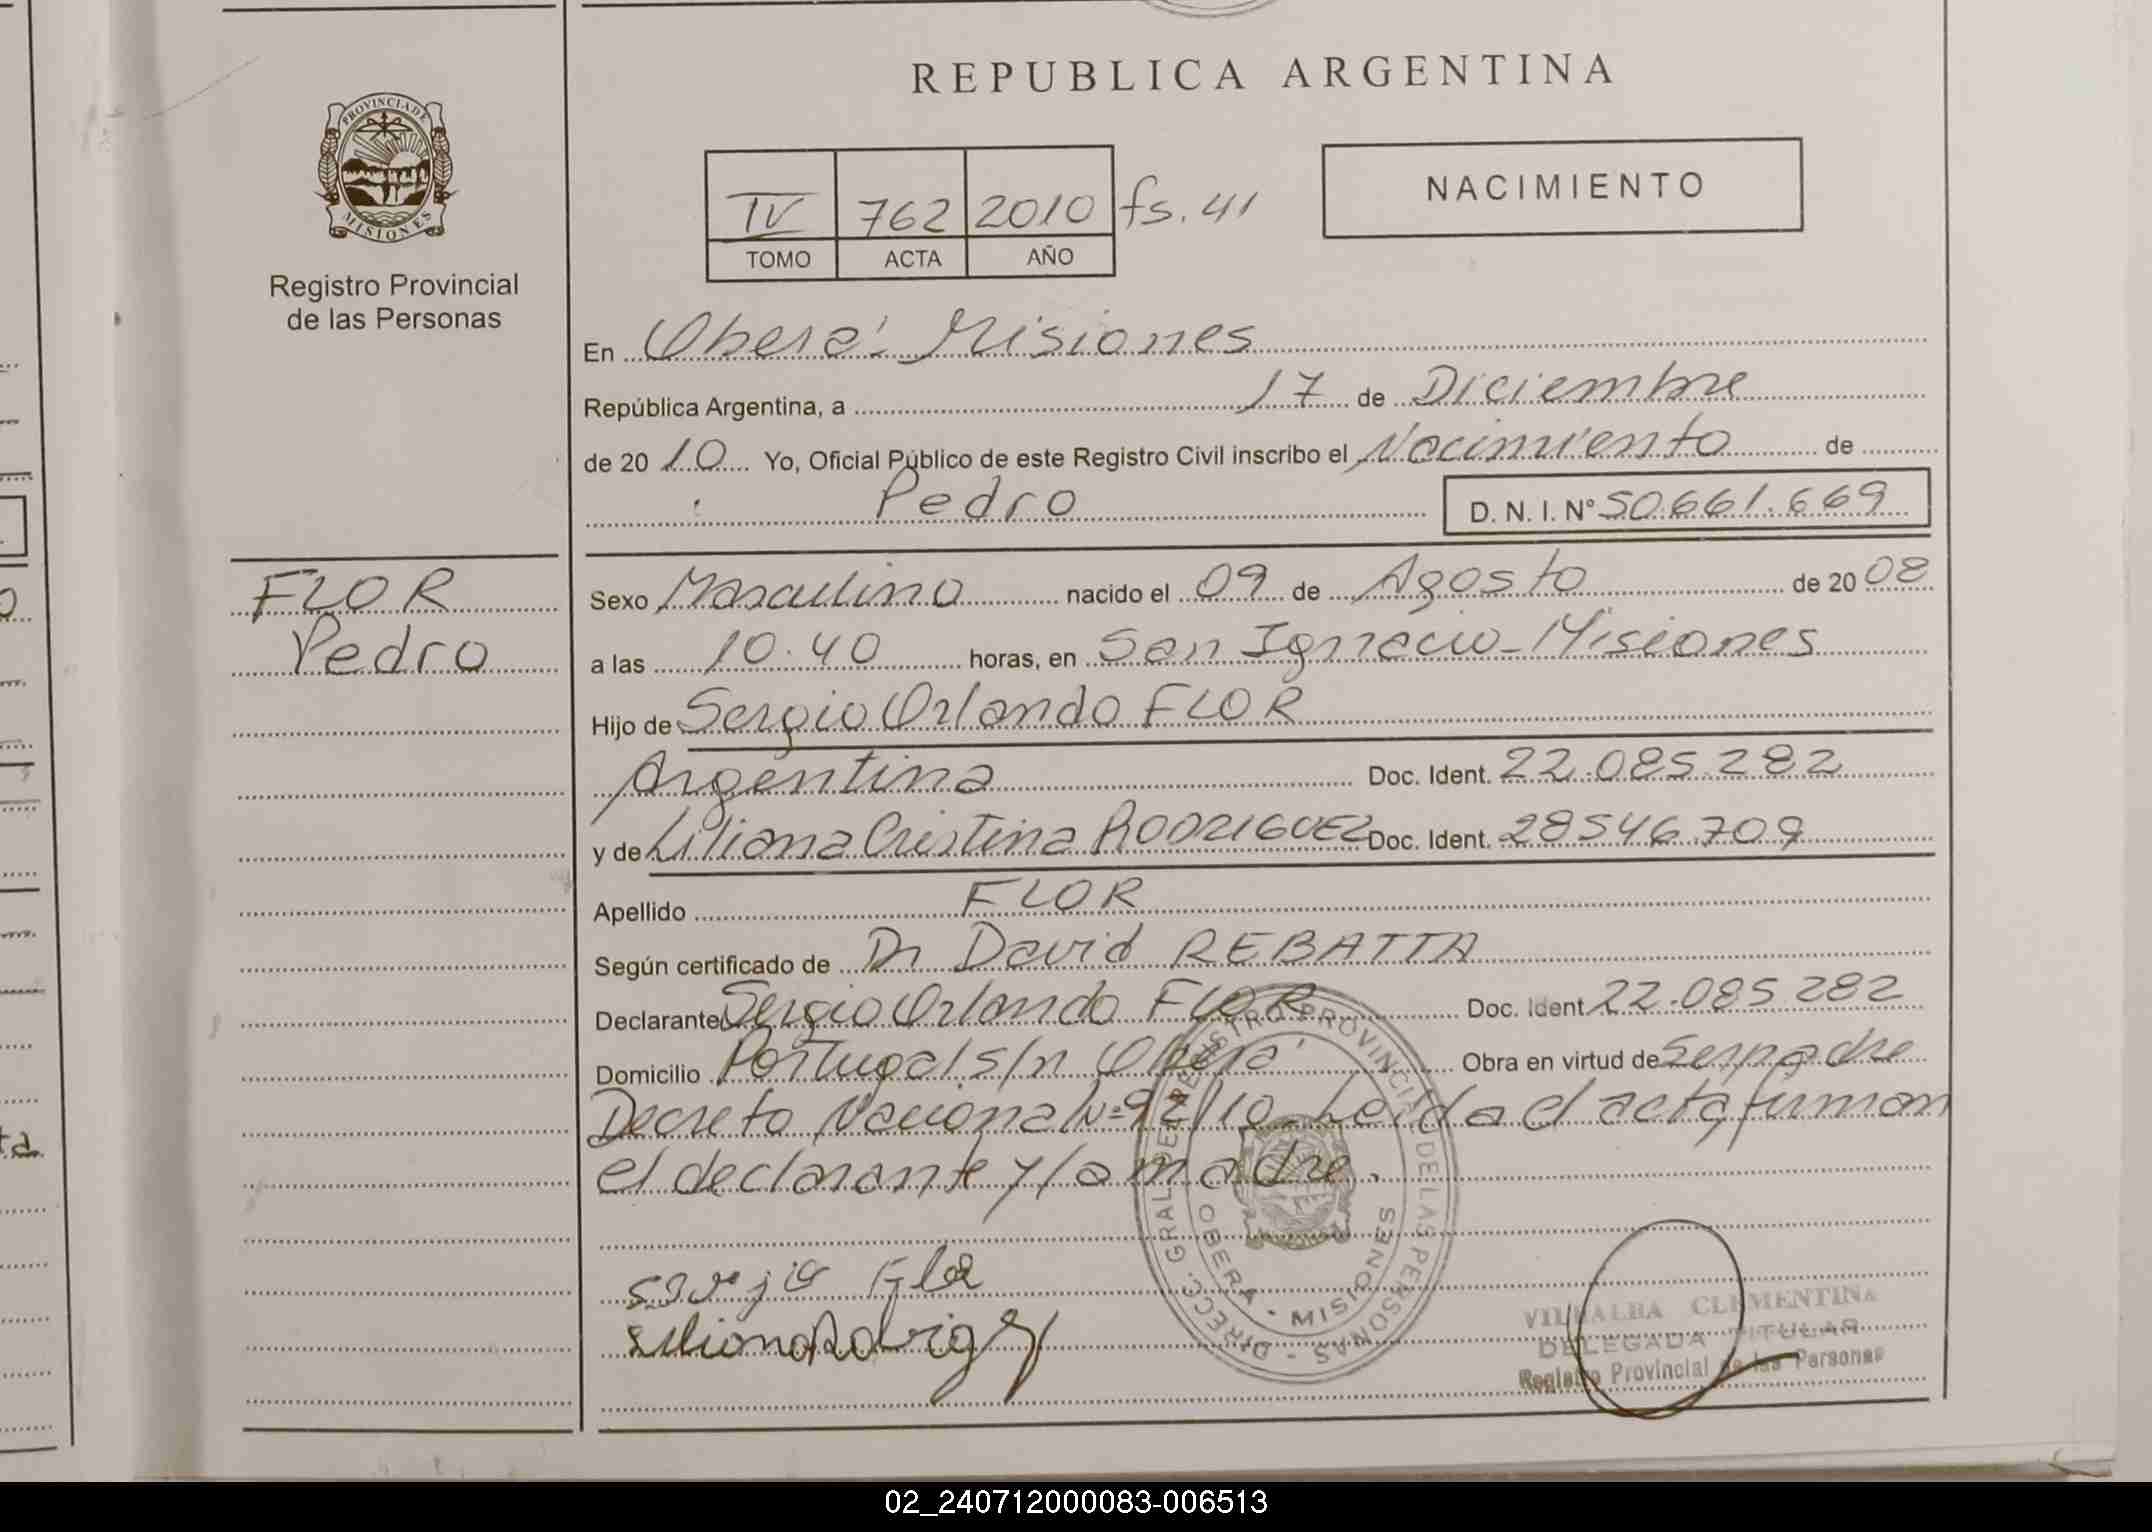 REPUBLICA ARGENTINA
PROVINCIA DE
MISIONES
Registro Provincial
de las Personas
NACIMIENTO
IV 762 2010 fs. 41
TOMO ACTA AÑO
En Oberá - Misiones
República Argentina, a 17 de Diciembre
de 20 10 Yo, Oficial Público de este Registro Civil inscribo el Nacimiento de
Pedro D. N. I. N° 50.661.669
FLOR
Pedro
Sexo Masculino nacido el 09 de Agosto de 20 08
a las 10.40 horas, en San Ignacio - Misiones
Hijo de Sergio Orlando FLOR
Argentina Doc. Ident. 22.085.282
y de Liliana Cristina RODRIGUEZ Doc. Ident. 28546.709
Apellido FLOR
Según certificado de Dr David REBATTA
Declarante Sergio Orlando FLOR Doc. Ident 22.085.282
Domicilio Portugal s/n Oberá Obra en virtud de Ser padre
Decreto Nacional N= 92/10 - Leida el acta firman
el declarante y la madre.
DIRECC. GRAL. DE REGISTRO PROVINCIAL DE LAS PERSONAS -
OBERA - MISIONES
Liliana Rodrigez
VILLALBA CLEMENTINA
DELEGADA TITULAR
Registro Provincial de las Personas
02_240712000083-006513